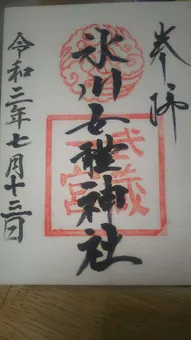 奉拝
氷川女體神社
武蔵
一宮
令和二年七月十三日